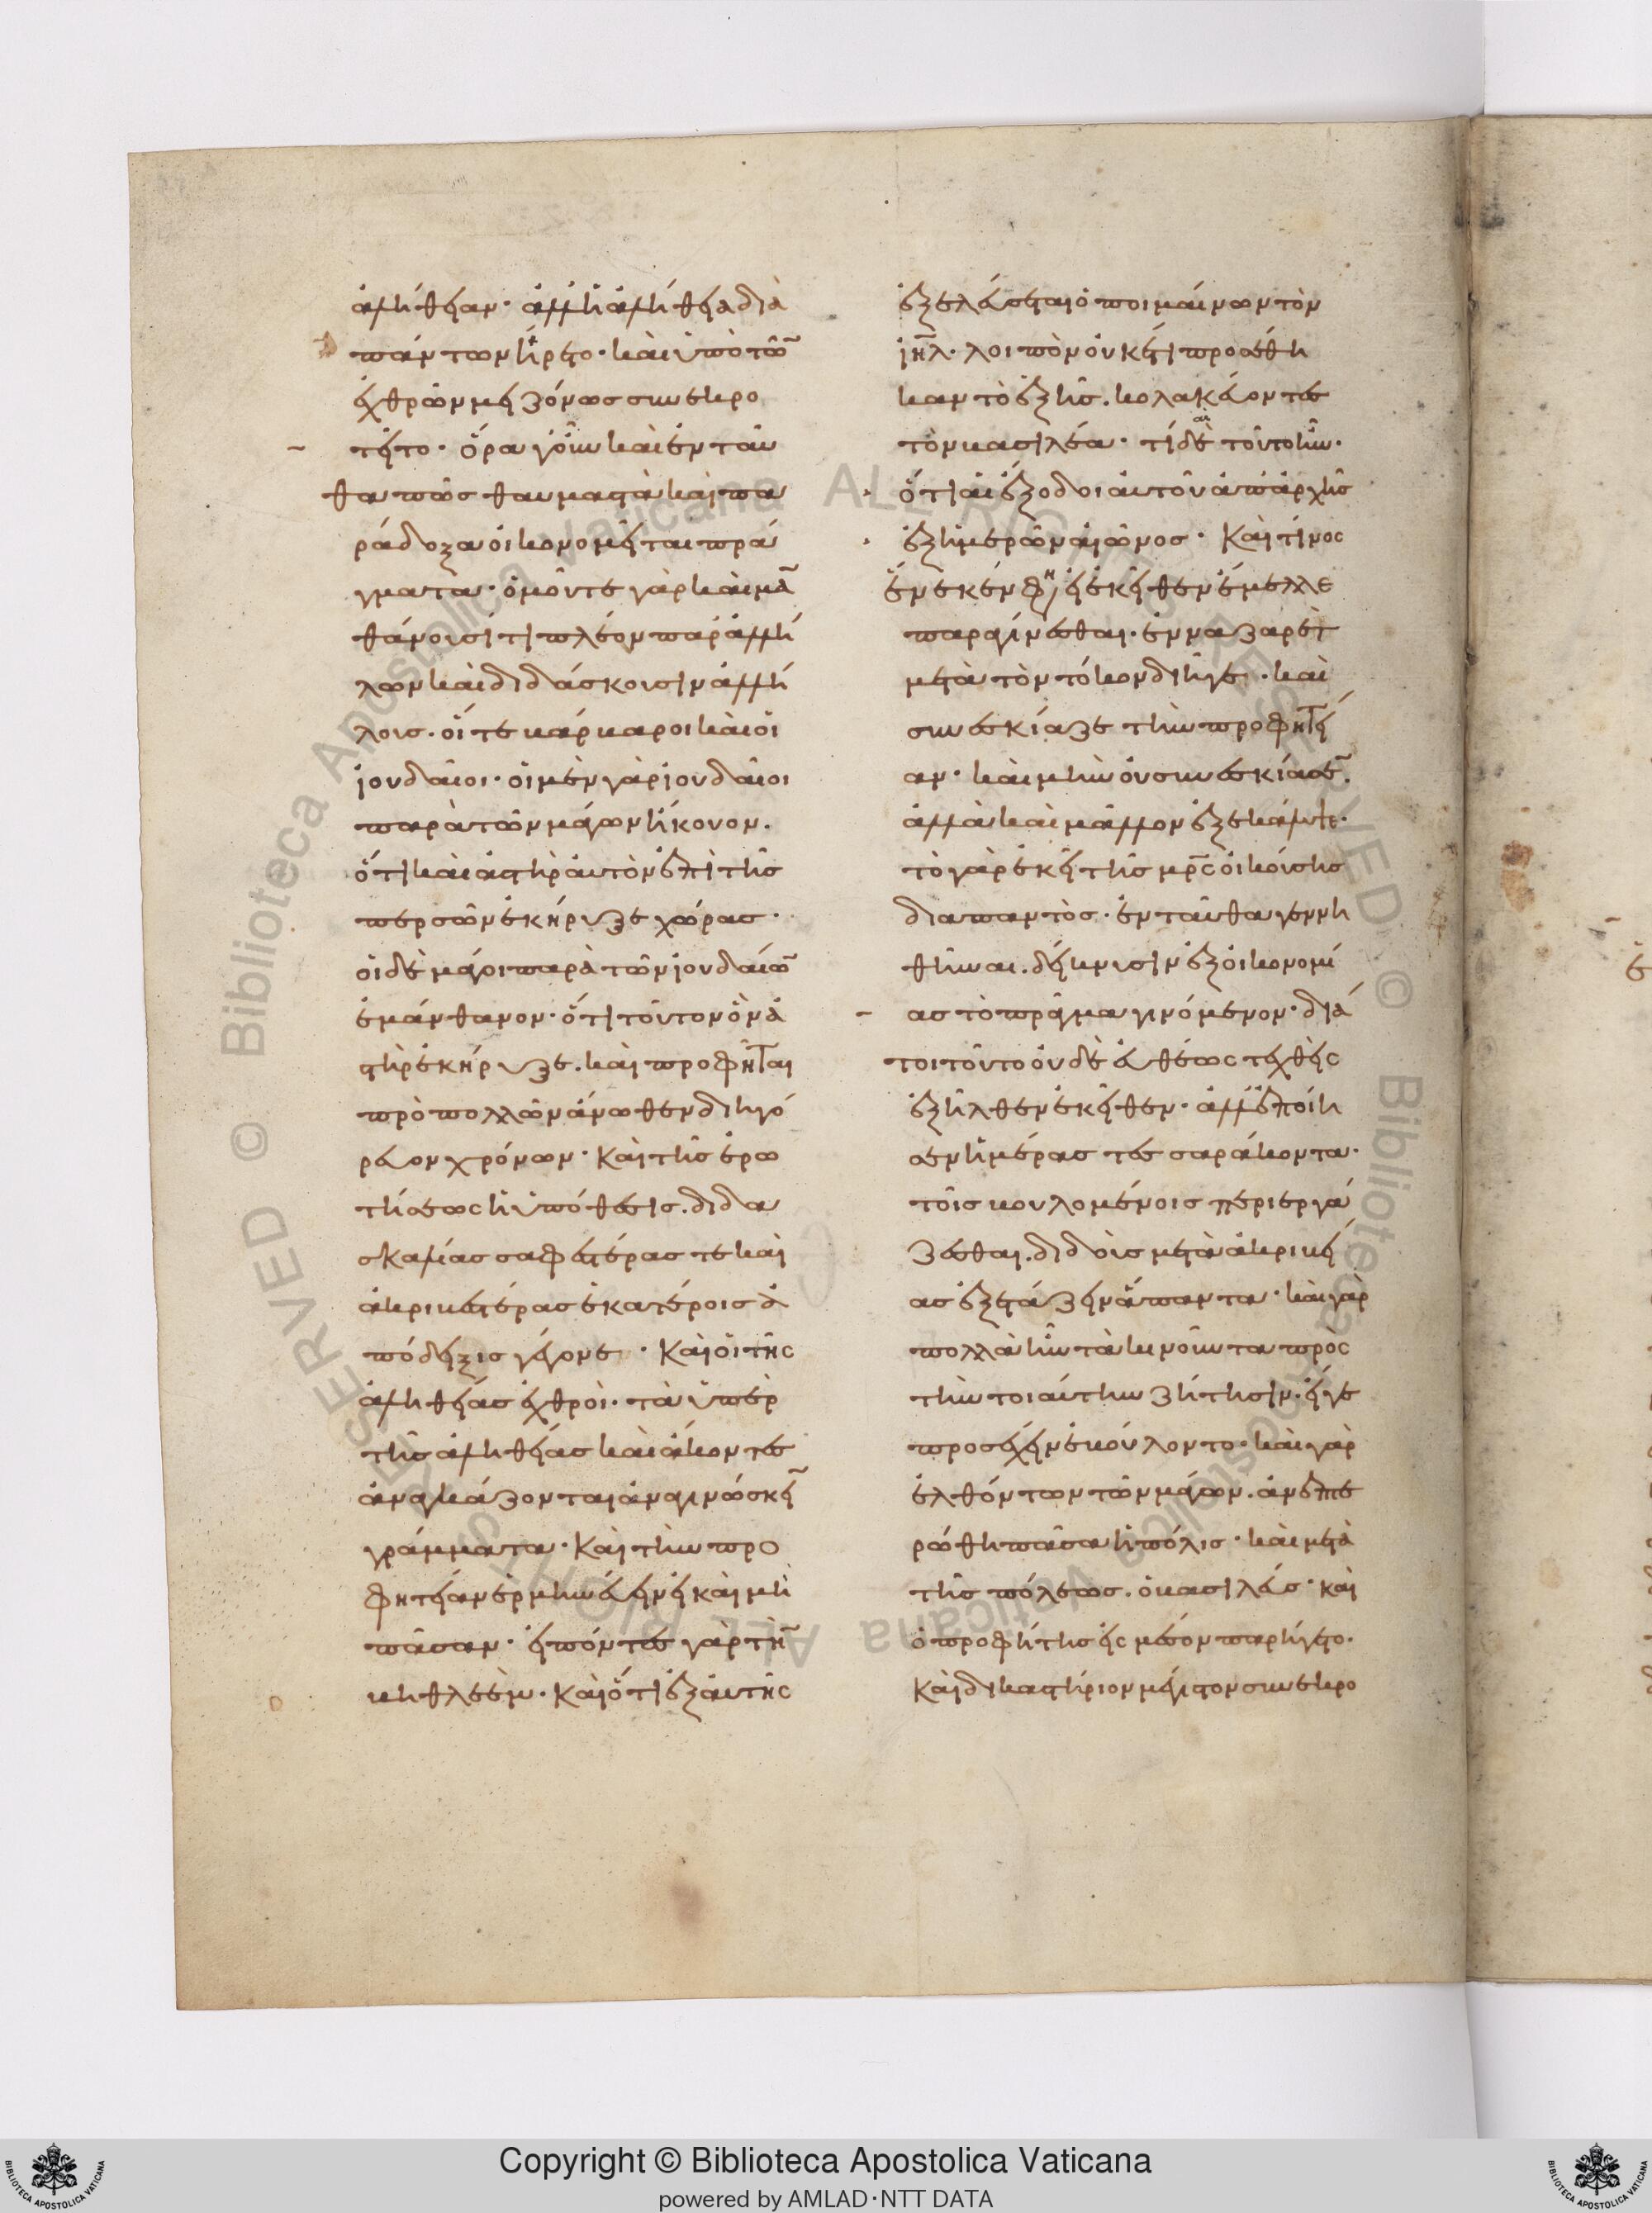 ἀλήθειαν· ἀλλ' ἡ ἀλήθεια διὰ
πάντων ἤρετο· καὶ ὑπὸ τῶ̄
ἐχθρῶν μειζόνως συνεκρο
τεῖτο· ὅρα γοῦν καὶ ἐνταῦ
θα πῶς θαυμαστὰ καὶ πα
ράδοξα οἰκονομεῖται πρά
γματα· ὁμοῦ τε γὰρ καὶ μᾱ
θάνουσί τι πλέον παρ' ἀλλή
λων καὶ διδάσκουσιν ἀλλή
λοις. οἵ τε βάρβαροι καὶ οἱ
ἰουδαῖοι· οἱ μὲν γὰρ ἰουδαῖοι
παρὰ τῶν μάγων ἤκουον.
ὅτι καὶ ἀστὴρ αὐτὸν ἐπὶ τῆς
περσῶν ἐκήρυξε χώρας·
οἱ δὲ μάγοι παρὰ τῶν ἰουδαίω̄
ἐμάνθανον· ὅτι τοῦτον ὃν ἀ
στὴρ ἐκήρυξε. καὶ προφῆται
πρὸ πολλῶν ἄνωθεν διηγό
ρευον χρόνων· Καὶ τῆς ἐρω
τήσεως ἡ ὑπόθεσις. διδα
σκαλίας σαφεστέρας τε καὶ
ἀκριβεστέρας ἑκατέροις ἀ
πόδειξις γέγονε· Καὶ οἱ τῆς
ἀληθείας ἐχθροὶ· τὰ ὑπὲρ
τῆς ἀληθείας καὶ ἄκοντες
ἀναγκάζονται ἀναγινώσκεῑ
γράμματα· Καὶ τὴν προ
φητείαν ἑρμηνεύειν εἰ καὶ μὴ
πᾶσαν· εἰπόντες γὰρ τὴ̄
βηθλεὲμ· Καὶ ὅτι ἐξ αὐτῆς
ἐξελεύσεται ὁ ποιμαίνων τὸν
ἰη̄λ· λοιπὸν οὐκέτι προσέθη
καν τὸ ἑξῆς. κολακεύοντες
τὸν βασιλέα· τί δὲ τοῦτο ἦν·
ὅτι αἱ ἔξοδοι αὐτοῦ ἀπ' ἀρχῆς
ἐξ ἡμερῶν αἰῶνος· Καὶ τίνος
ἕνεκεν φη̄ εἰ ἐκεῖθεν ἔμελλε
παραγίνεσθαι· ἐν ναζαρὲτ
μετὰ τὸν τόκον διῆγε· καὶ
συνεσκίαζε τὴν προφητεί
αν· καὶ μὴν οὐ συνεσκίασε̄.
ἀλλὰ καὶ μᾶλλον ἐξεκάλυψε·
τὸ γὰρ ἐκεῖ τῆς μρ̄ς οἰκούσης
διαπαντὸς· ἐνταῦθα γεννη
θῆναι. δείκνυσιν ἐξ οἰκονομί
ας τὸ πρᾶγμα γινόμενον· διά
τοι τοῦτο οὐδὲ εὐθέως τεχθεὶς
ἐξῆλθεν ἐκεῖθεν· ἀλλ' ἐποίη
σεν ἡμέρας τεσσαράκοντα·
τοῖς βουλομένοις περιεργά
ζεσθαι. διδοὺς μετὰ ἀκριβεί
ας ἐξετάζειν ἅπαντα· καὶ γὰρ
πολλὰ ἦν τὰ κινοῦντα πρὸς
τὴν τοιαύτην ζήτησιν. εἴγε
προσέχειν ἐβούλοντο· καὶ γὰρ
ἐλθόντων τῶν μάγων. ἀνεπτε
ρώθη πᾶσα ἡ πόλις· καὶ μετὰ
τῆς πόλεως. ὁ βασιλεύς· καὶ
ὁ προφήτης εἰς μέσον παρήγετο·
Καὶ δικαστήριον μέγιστον συνεκρο